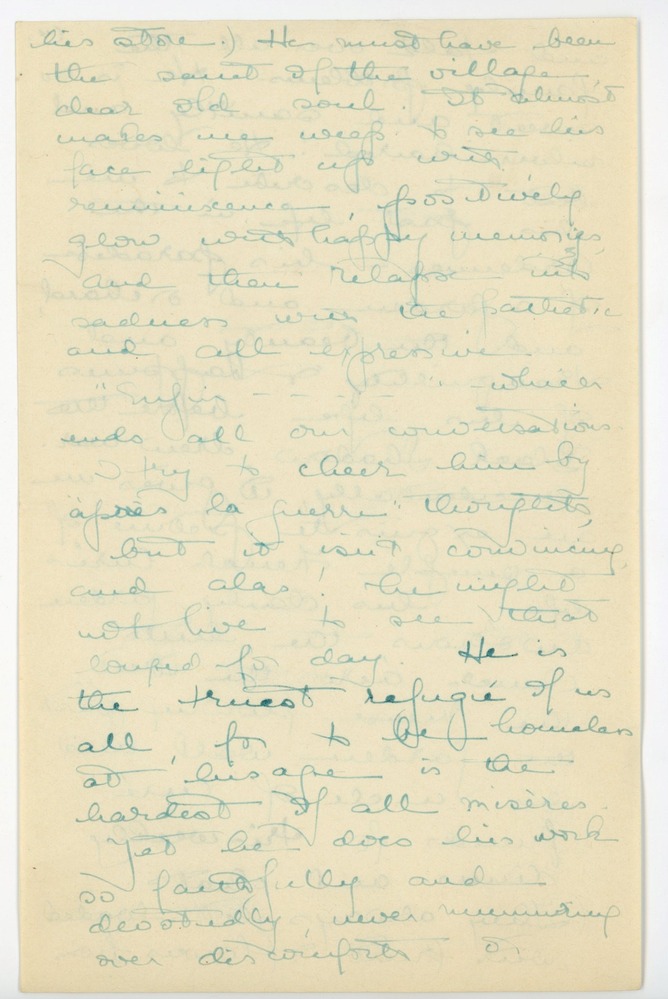 his store.) He must have been
the saint of the village,
dear old soul. It almost
makes me weep to see his
face light up with
reminiscence, positively
glow with happy memories,
and then relapse into
sadness with the pathetic
and all expressive
"Enfin - - - -" - which
ends all our conversations.
I try to cheer him by
"après la guerre" thoughts,
but it isn't convincing,
and alas! he might
not live to see that
longed for day. He is
the truest refugié of us
all, for to be homeless
at his age is the
hardest of all misères.
Yet he does his work
so faithfully and
devotedly, never murmuring
over discomforts or